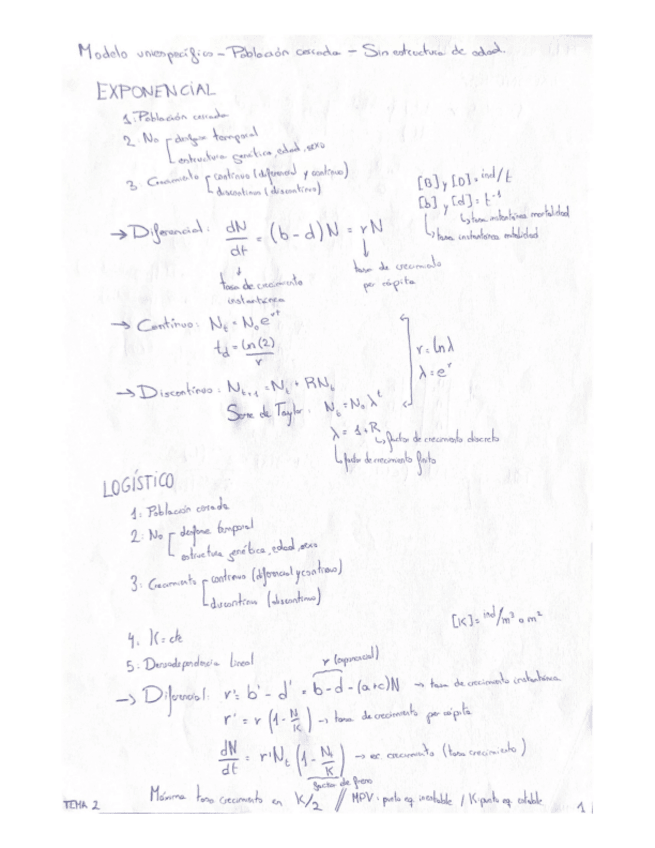 Modelo uniespecífico - Población cerrada - Sin estructura de edad.
EXPONENCIAL
1. Población cerrada
2. No desfase temporal
estructura genética, edad, sexo
3. Crecimiento continuo (diferencial y continuo)
discontinuo (discontinuo)
[B] y [D] = ind/t
[b] y [d] = t⁻¹
tasa instantánea mortalidad
tasa instantánea natalidad
→ Diferencial: dN/dt = (b - d) N = rN
tasa de crecimiento instantánea
tasa de crecimiento per cápita
→ Continuo: Nt = N₀ e^rt
td = ln(2)/r
r = ln λ
λ = e^r
→ Discontinuo: Nt+1 = Nt + RNt
Serie de Taylor: Nt = N₀ λ^t
λ = 1 + R
factor de crecimiento discreto
factor de crecimiento finito
LOGÍSTICO
1. Población cerrada
2. No desfase temporal
estructura genética, edad, sexo
3. Crecimiento continuo (diferencial y continuo)
discontinuo (discontinuo)
[K] = ind/m³ o m²
4. K = cte
5. Densodependencia Lineal
r (exponencial)
→ Diferencial: r' = b' - d' = b - d - (a+c)N → tasa de crecimiento instantánea
r' = r (1 - N/K) → tasa de crecimiento per cápita
dN/dt = r'Nt (1 - Nt/K) → ec crecimiento (tasa crecimiento)
factor de freno
Máxima tasa crecimiento en K/2 // MPV: punto eq. inestable / K: punto eq. estable
TEMA 2
1